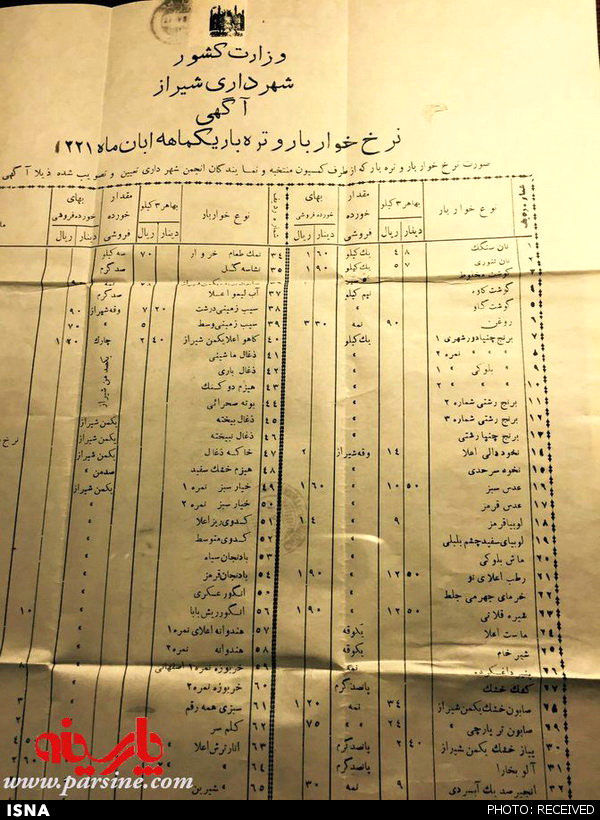 وزارت کشور
شهرداری شیراز
آگهی
نرخ خوار بار و تره بار یکماهه ابان ماه ۲۲۱
صورت نرخ خوار بار و تره بار که از طرف کمسیون منتخبه و نمایندگان انجمن شهرداری تعیین و تصویب شده ذیلا آگهی
شماره ردیف نوع خوار بار بهاهر ۳ کیلو دینار ریال مقدار خورده فروشی بهای خورده فروشی دینار ریال
۱ نان سنگک ۴۸ یك کیلو ۱۶۰
۲ نان تنوری ۵۷ » ۱۹۰
۳ گوشت مخلوط
گوشت گاوه نیم کیلو
گوشت گاو
۶ روغن ۹۰ نمه ۳۳۰
۷ برنج چنپا دور شهری ۱ یك کیلو
» » نمره ۲
۹ » بلوکی ۱
۱۰ » » ۲
۱۱ برنج رشتی شماره ۲
۱۲ برنج رشتی شماره ۳
۱۳ برنج چنپا رشتی
۱۴ نخود دالی اعلا ۱۴ وقه شیراز ۲
۱۵ نخود سرحدی
۱۶ عدس سبز ۱۰ ۵۰ » ۱۶۰
۱۷ عدس قرمز
۱۸ لوبیا قرمز ۹ » ۱۴۰
۱۹ لوبیای سفید چشم بلبلی
۲۰ ماش بلوکی
۲۱ رطب اعلای نو ۱۲ ۵۰ » ۱۹۰
۲۲ خرمای جهرمی جلط
۲۳ شیره قلاتی ۱۲ ۵۰ » ۱۹۰
۲۴ ماست اعلا یکوقه
۲۵ شیر خام یکوقه
۲۶ نمه
۲۷ کشك خشك پانصد گرم
صابون خشك یکمن شیراز ۳۴ نمه ۱۲۰
صابون تر پارچی ۲۴ » ۷۵
۳۰ پیاز خشك یکمن شیراز ۲ ۴۰ پانصد گرم
۳۱ آلو بخارا پانصد گرم
۳۲ انجیر صد یك ۹ نمه ۳۰
شماره ردیف نوع خوار بار بهاهر ۳ کیلو دینار ریال مقدار خورده فروشی بهای خورده فروشی دینار ریال
۳۴ نمك طعام خروار ۷۰ سه کیلو
۳۵ نشاسته گندم صد گرم
۳۷ آب لیمو اعلا صد گرم
۳۸ سیب زمینی درشت ۷ ۲۰ وقه شیراز ۹۰
۳۹ سیب زمینی وسط ۵ » ۷۰
۴۰ کاهو اعلا یکمن شیراز ۲ ۴۰ چارك ۱۲۰
۴۱ ذغال ماشینی یکصد من شیراز
۴۲ ذغال باری
۴۳ هیزم دو کنك
۴۴ بوته صحرائی
۴۵ ذغال بیخته یکمن شیراز
۴۶ ذغال نبیخته یکمن شیراز
۴۷ خاکه ذغال یکمن شیراز
۴۸ هیزم خشك سفید صدمن »
۴۹ خیار سبز نمره ۱ یکمن شیراز
۵۰ خیار سبز نمره ۲
۵۱ کدوی ریز اعلا
۵۲ کدوی متوسط
۵۳ بادنجان سیاه
۵۴ بادنجان قرمز
انگور عسکری
۵۶ انگور ریش بابا ۱۰
۵۷ هندوانه اعلای نمره ۱
۵۸ هندوانه نمره ۲
۵۹ خربوزه نمره ۱ اصفهانی
۶۰ خربوزه نمره ۲
۶۱ سبزی همه رقم
۶۲ کلم سر
۶۳ انار ترش اعلا
۶۵ » شیرین
پارسینه
www.parsine.com
ISNA
PHOTO: RECEIVED